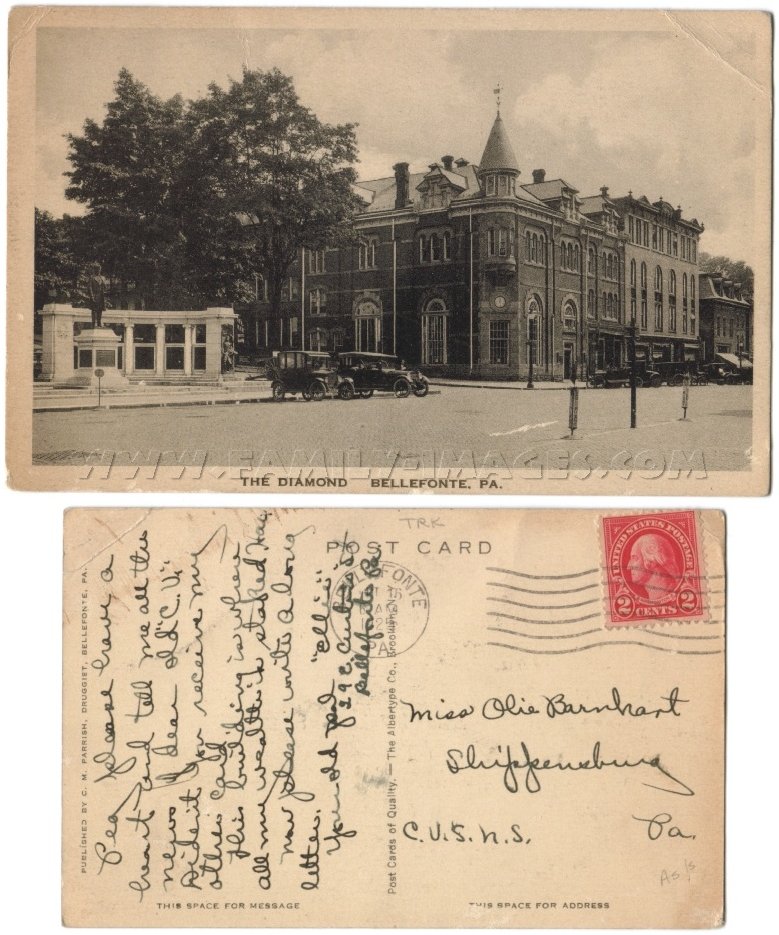 WWW.FAMILY-IMAGES.COM
THE DIAMOND BELLEFONTE, PA.
TRK
POST CARD
UNITED STATES POSTAGE
2 CENTS 2
BELLEFONTE
15
AM
1925
PA.
PUBLISHED BY C. M. PARRISH, DRUGGIST, BELLEFONTE, PA.
Peg please have a
heart and tell me all the
news of dear old "C.V."
Did it you receive my
other card
This building is where
all my wealth is staked
now please write a long
letter.
Your old pal "Elli"
29 E. Curtin St
Bellefonte Pa.
Post Cards of Quality. — The Albertype Co., Brooklyn, N.Y.
Miss Olie Barnhart
Shippensburg
C.V.S.N.S. Pa.
As is
THIS SPACE FOR MESSAGE
THIS SPACE FOR ADDRESS